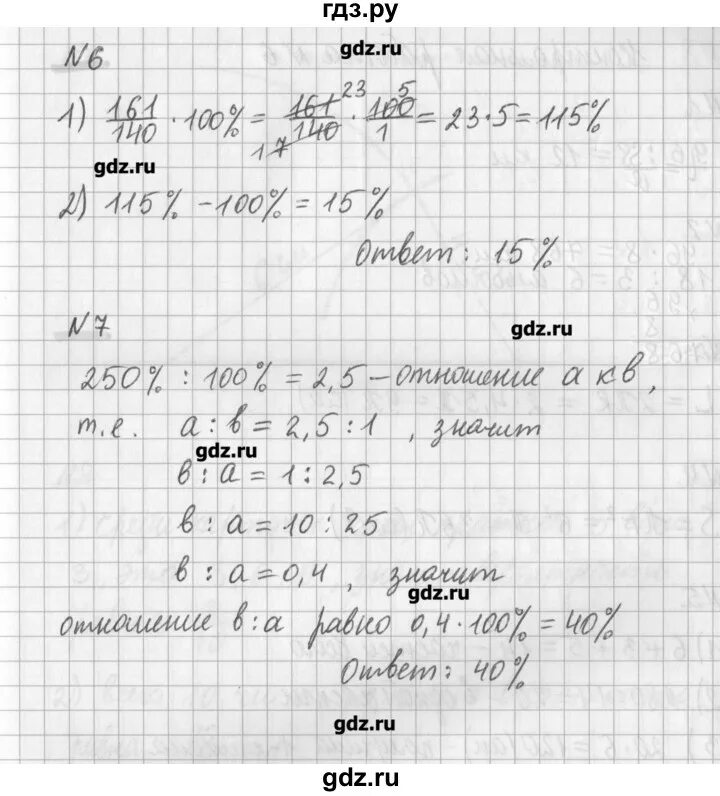 гдз.ру
gdz.ru
N6
1) 161/140 · 100% = 161/140 · 100/1 = 23·5 = 115%
23 5
1 7
gdz.ru
2) 115% - 100% = 15%
Ответ: 15%
N7
gdz.ru
250% : 100% = 2,5 – отношение а к в,
т.е. а : в = 2,5 : 1 , значит
gdz.ru
в : а = 1 : 2,5
в : а = 10 : 25
в : а = 0,4 , значит
gdz.ru
отношение в:а равно 0,4·100% = 40%
Ответ: 40%
gdz.ru
gdz.ru